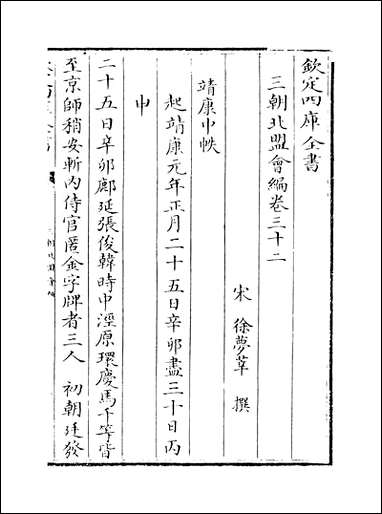 欽定四庫全書
三朝北盟會編卷三十二
宋 徐夢莘 撰
靖康中帙
起靖康元年正月二十五日辛卯盡三十日丙
申
二十五日辛卯鄜延張俊韓時中涇原環慶馬千等皆
至京師稍安斬內侍官匿金字牌者三人 初朝廷發